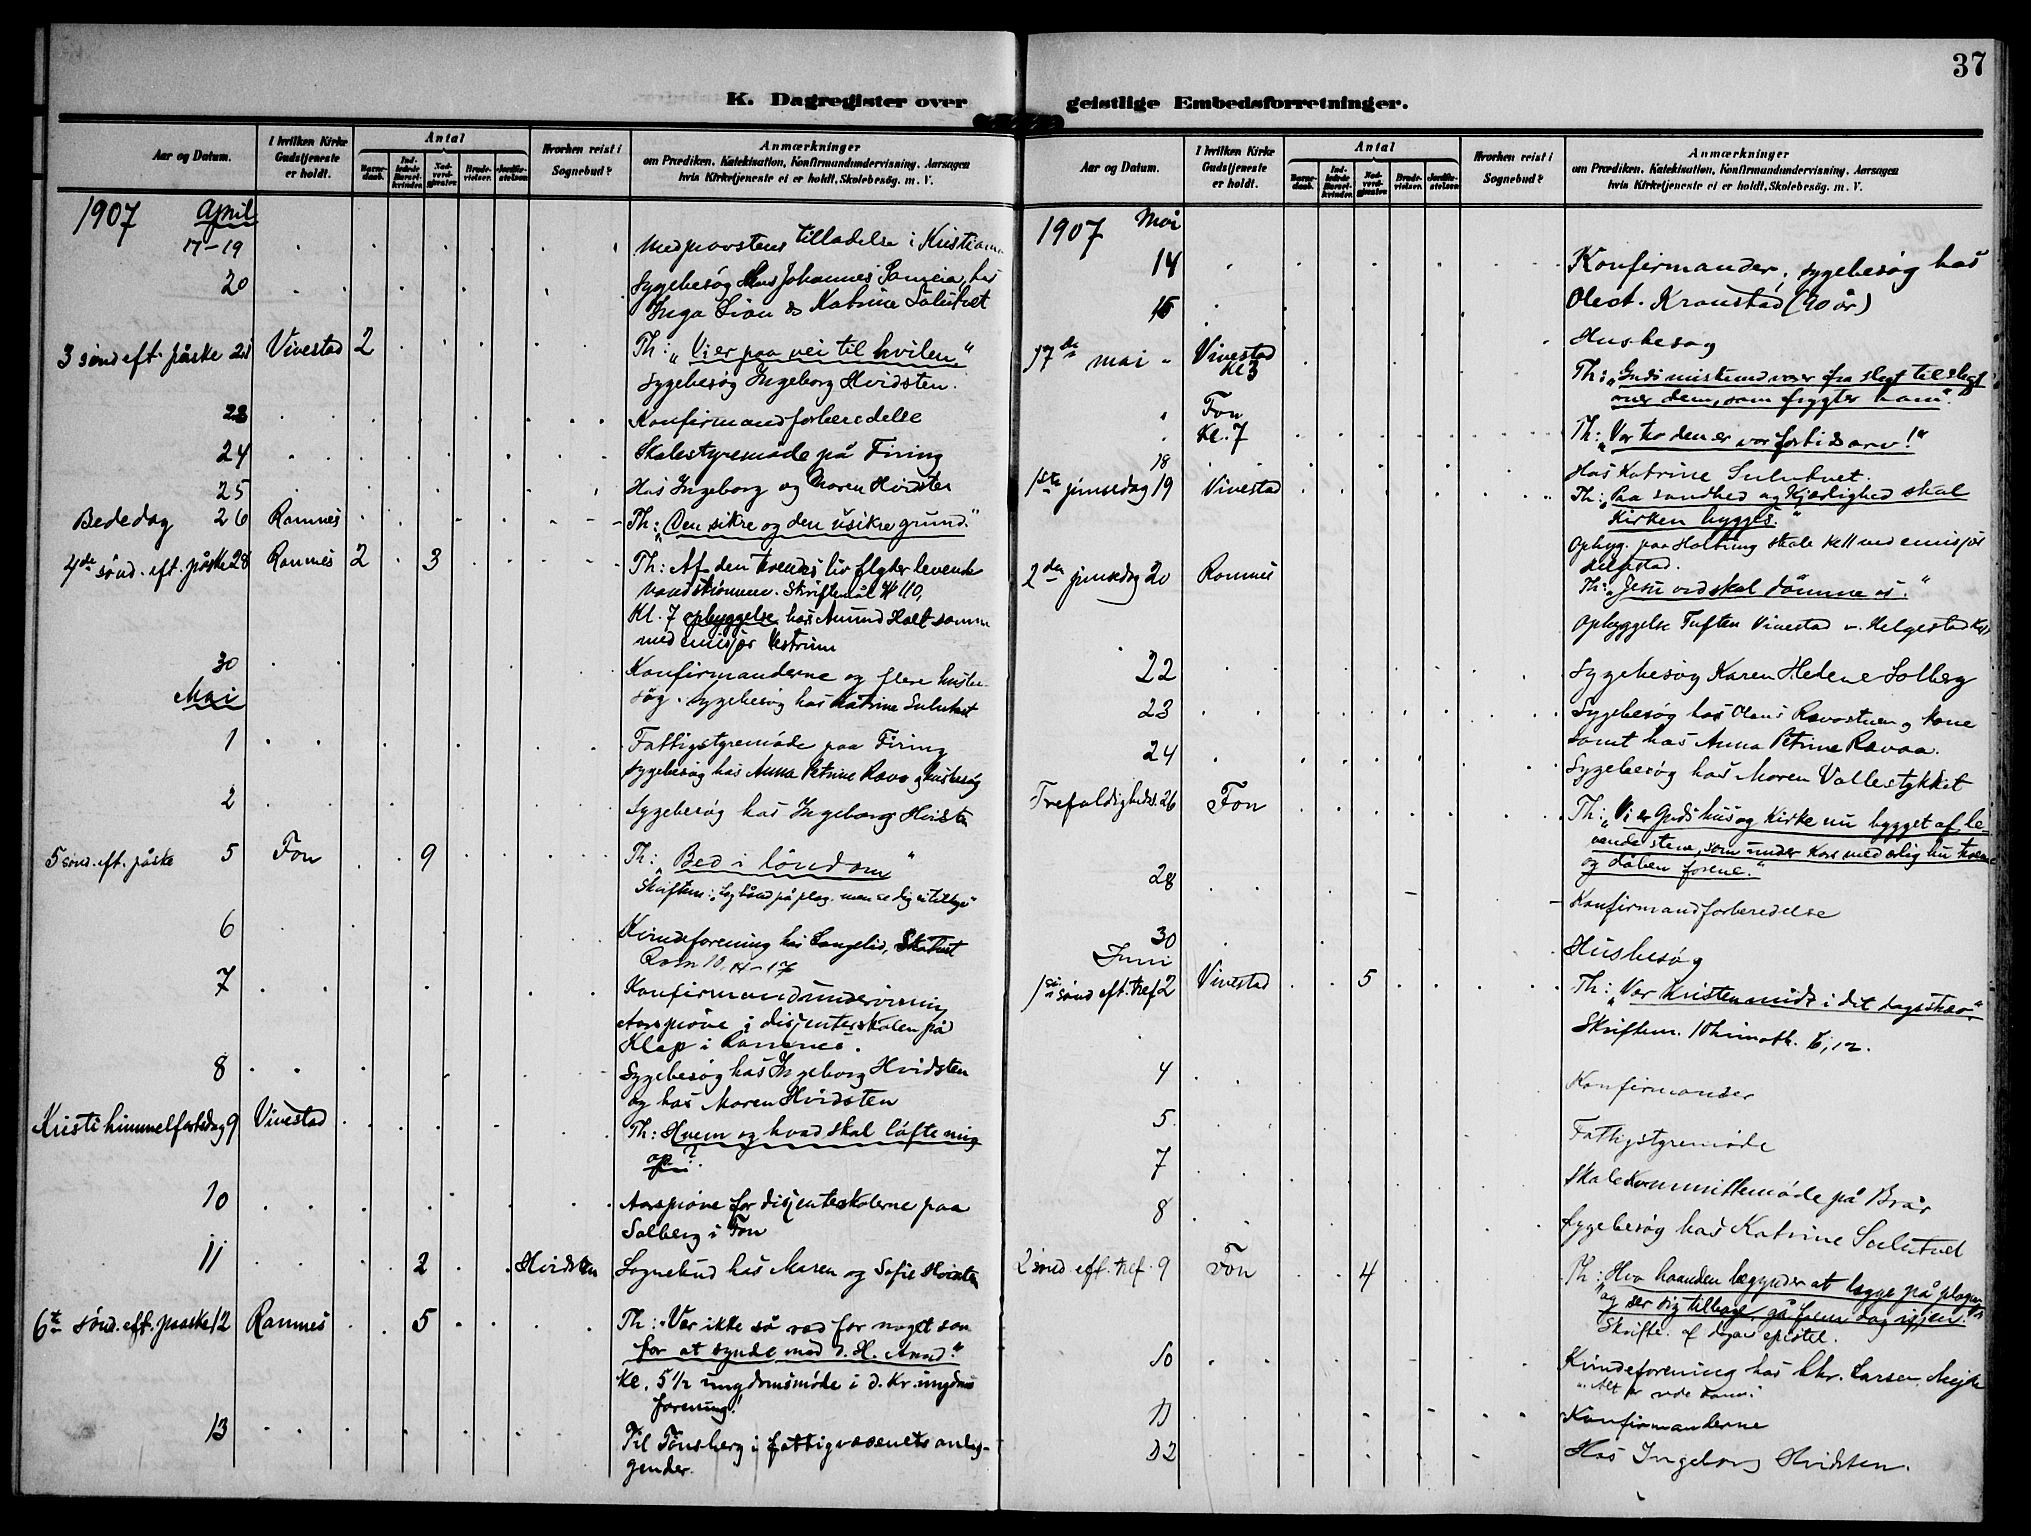 37
K. Dagregister over geistlige Embedsforretninger.
Aar og Datum.
I hvilken Kirke Gudstjeneste er holdt.
Antal
Barnedaab.
Indledede Barselkvinder.
Nadverdgjester.
Brudevielser.
Jordfæstelser.
Hvorhen reist i Sognebud?
Anmærkninger
om Prædiken, Katekisation, Konfirmandundervisning, Aarsagen
hvis Kirketjeneste ei er holdt, Skolebesög. m. V.
1907 April
17-19 Med provstens tilladelse i Kristiania
20 Sygebesøg hos Johannes, hos
Inga Lian & Katrine Sulutvet
3 sønd eft. påske 21 Vivestad 2 Th: "Vi er paa vei til hvilen"
Sygebesøg Ingeborg Hvidsten.
23 Konfirmandforberedelse
24 Skolestyremøde på Firing
25 Hos Ingeborg og Maren Hvidsten
Bededag 26 Ramnes Th: "Den sikre og den usikre grund."
4de sønd. eft. påske 28 Ramnes 2 3 Th: Af den troendes liv flyder levende
vandstrømme. Skriftemål 110,
Kl. 7 opbyggelse hos Amund Holt sammen
med emisjør Vestrum
30 Konfirmanderne og flere husbe-
søg. sygebesøg hos Katrine Sulutvet
Mai
1 Fattigstyremøde paa Firing
Sygebesøg hos Anna Petrine Ravo og husbesøg
2 Sygebesøg hos Ingeborg Hvidsten
5 sønd. eft. påske 5 Fon 9 Th: "Bed i løndom"
Skriftem: "Læg hånd på plog. men se dig ei tilbage"
6 Kvindeforening hos Langelid,
Rom 10, 14-17
7 Konfirmandundervisning
Aarsprøve i disjenterskolen på
Klap i Ramnes.
8 Sygebesøg hos Ingeborg Hvidsten
og hos Maren Hvidsten
Kristi himmelfartsdag 9 Vivestad Th: Hvem og hvad skal løfte mig
op?
10 Aarsprøve for disjenterskolerne paa
Solberg i Fon
11 2 Hvidsten Sognebud hos Maren og Sofie Hvidsten
6te sønd. eft. paaske 12 Ramnes 5 Th: Vær ikke så ræd for noget som
for at synde mod d. H. Aand."
Kl. 5 1/2 ungdomsmøde i d. kr. ungdoms
forening!
13 Til Tønsberg i fattigvæsenets anlig-
gender.
Aar og Datum.
I hvilken Kirke Gudstjeneste er holdt.
Antal
Barnedaab.
Indledede Barselkvinder.
Nadverdgjester.
Brudevielser.
Jordfæstelser.
Hvorhen reist i Sognebud?
Anmærkninger
om Prædiken, Katekisation, Konfirmandundervisning, Aarsagen
hvis Kirketjeneste ei er holdt, Skolebesög. m. V.
1907 Mai
14 Konfirmander, sygebesøg hos
Olest. Kronstad (90 år)
15 Husbesøg
17de mai Vivestad Kl 3 Th: "Guds miskund varer fra slegt til slegt
over dem, som frygter ham."
Fon Kl. 7 Th: "Vor tro den er vor fortids arv!"
18 Hos Katrine Sulutvet.
1ste pinsedag 19 Vivestad Th: "Paa sandhed og kjærlighed skal
kirken bygges."
Opbyg. paa Holtung skole Kl 1 ved emisjør
Helgestad.
2den pinsedag 20 Ramnes Th: "Jesu ord skal dømme os."
Opbyggelse Tuften Vivestad v. Helgestad
22 Sygebesøg Karen Helene Solberg
23 Sygebesøg hos Olaus Ravastuen og kone
samt hos Anna Petrine Ravaa.
24 Sygebesøg hos Maren Vollestykket
Trefoldigheds. 26 Fon Th: "Vi er Guds hus og kirke nu bygget af le-
vende stene, som under kors med ærlig hu troen
og dåben forene."
28 Konfirmandforberedelse
30 Husbesøg
Juni
1ste sønd eft. tref 2 Vivestad 5 Th: "Vær kristen midt i dit dagsstræv,"
Skriftem. 1 Thimoth. 6, 12.
4 Konfirmander
5. Fattigstyremøde
7 Skolekommittemøde på Brår
8 Sygebesøg hos Katrine Sulutvet
2 sønd eft. tref. 9 Fon 4 Th: "Hvo haanden begynder at lægge på plogen
og ser sig tilbage, gå frem dog igjen."
Skrifte. af dagens epistel.
10 Kvindeforening hos Chr. Larsen,
"Alt er rede kom"
11 Konfirmanderne
12 Hos Ingeborg Hvidsten.